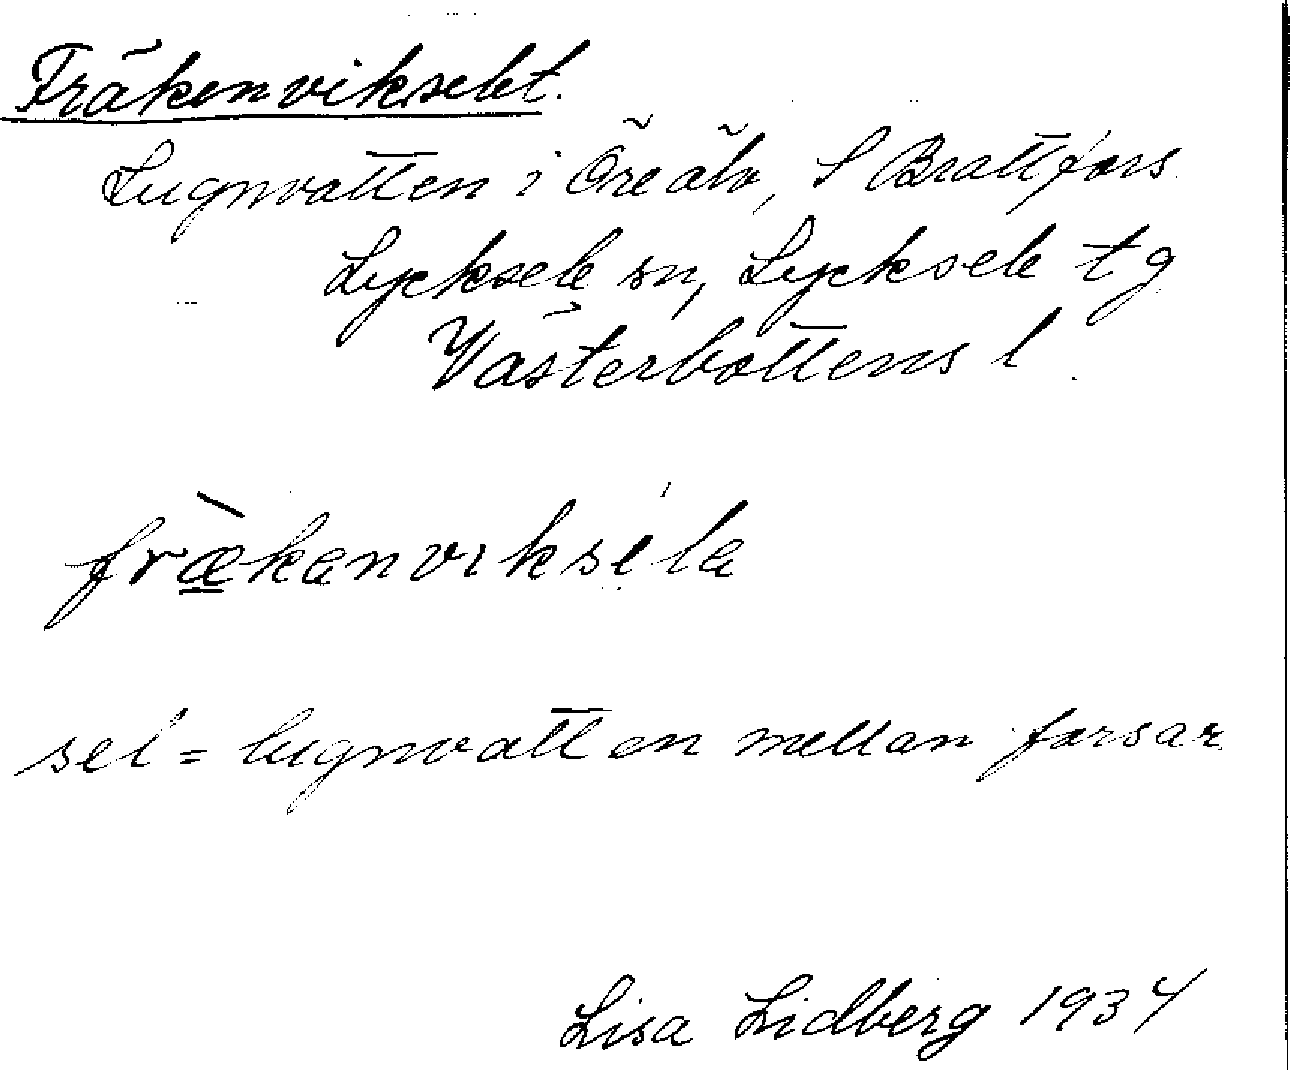 Fräkenvikselet.
Lugnvatten i Öreälv, S Brattfors.
Lycksele sn, Lycksele tg
Västerbottens l.
fræ̀kanviksela
sel = lugnvatten mellan forsar
Lisa Lidberg 1934